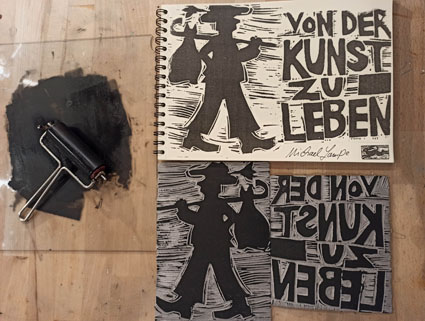 VON DER
KUNST
ZU
LEBEN
Michael
VON DER
KUNST
ZU
LEBEN